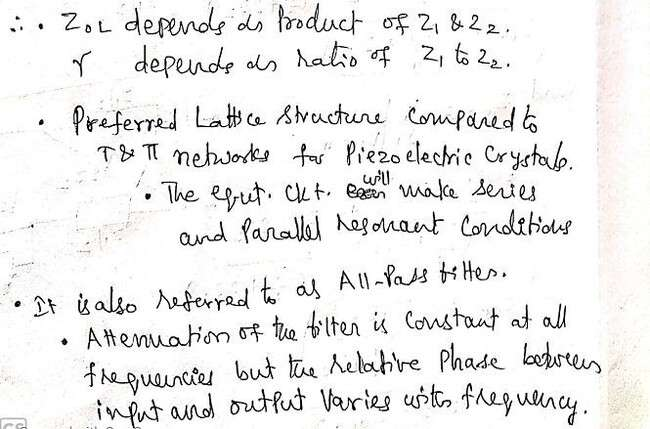 ∴ • Z₀L depends as Product of Z₁ & Z₂.
γ depends as ratio of Z₁ to Z₂.
• Preferred Lattice Structure Compared to
T & π networks for Piezoelectric Crystals.
• The equt. ckt. will make series
and Parallel resonant Conditions
• It is also referred to as All-Pass filter.
• Attenuation of the filter is Constant at all
frequencies but the relative Phase between
input and output Varies with frequency.
CS